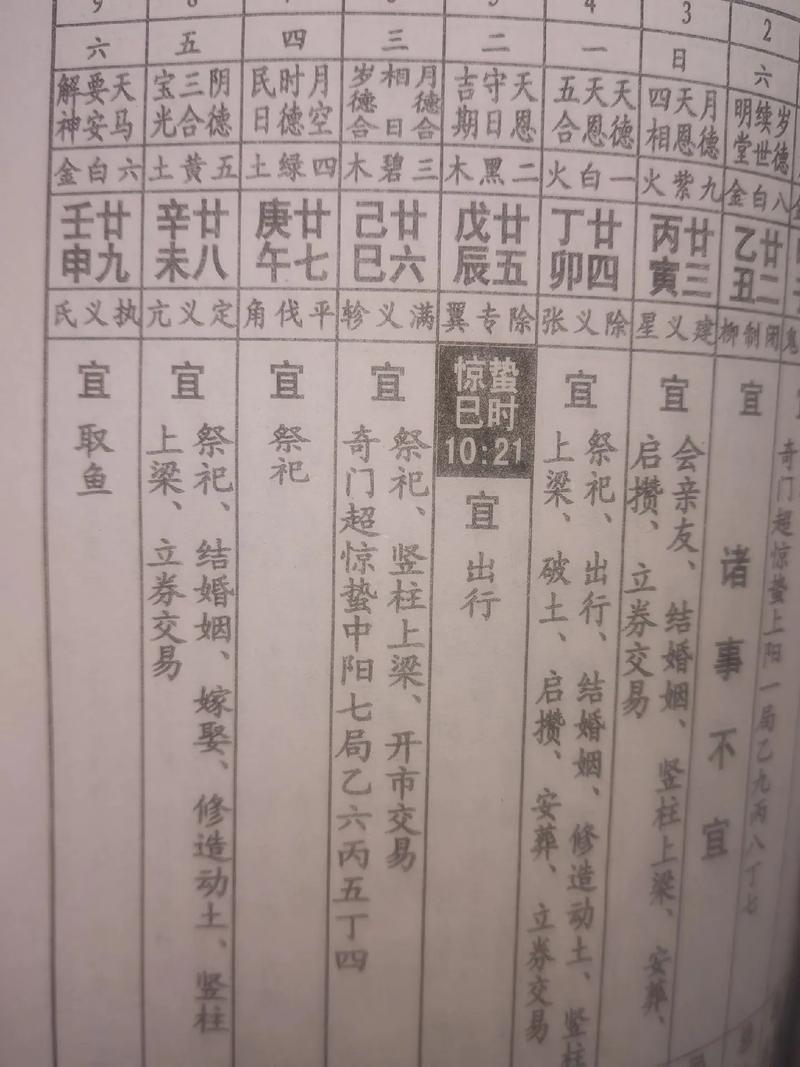 奇门超惊蛰上阳一局乙九丙八丁七
2
六
岁德 续世 明堂
八白金
廿二 乙丑
闭制柳
宜
诸事不宜
3
日
月德 天恩 四相
九紫火
廿三 丙寅
建义星
宜
会亲友、结婚姻、竖柱上梁、安葬、
启攒、立券交易
4
一
天德 天恩 五合
一白火
廿四 丁卯
除义张
宜
祭祀、出行、结婚姻、修造动土、竖柱
上梁、破土、启攒、安葬、立券交易
5
二
天恩 守日 吉期
二黑木
廿五 戊辰
除专翼
惊蛰
巳时
10:21
宜
出行
三
月德合 相日 岁德合
三碧木
廿六 己巳
满义轸
宜
祭祀、竖柱上梁、开市交易
奇门超惊蛰中阳七局乙六丙五丁四
四
月空 时德 民日
四绿土
廿七 庚午
平伐角
宜
祭祀
五
阴德 三合 宝光
五黄土
廿八 辛未
定义亢
宜
祭祀、结婚姻、嫁娶、修造动土、竖柱
上梁、立券交易
9
六
天马 要安 解神
六白金
廿九 壬申
执义氐
宜
取鱼